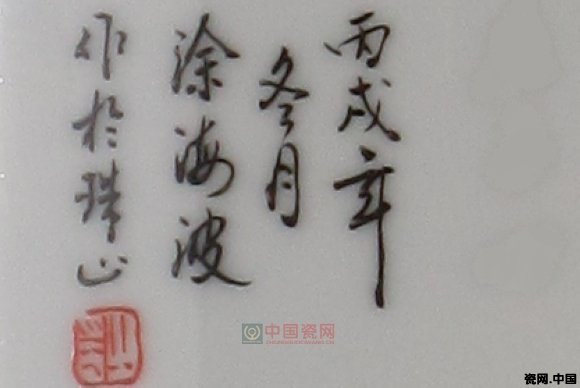 丙戌年
冬月
涂海波
作於珠山
中国瓷网
瓷网.中国